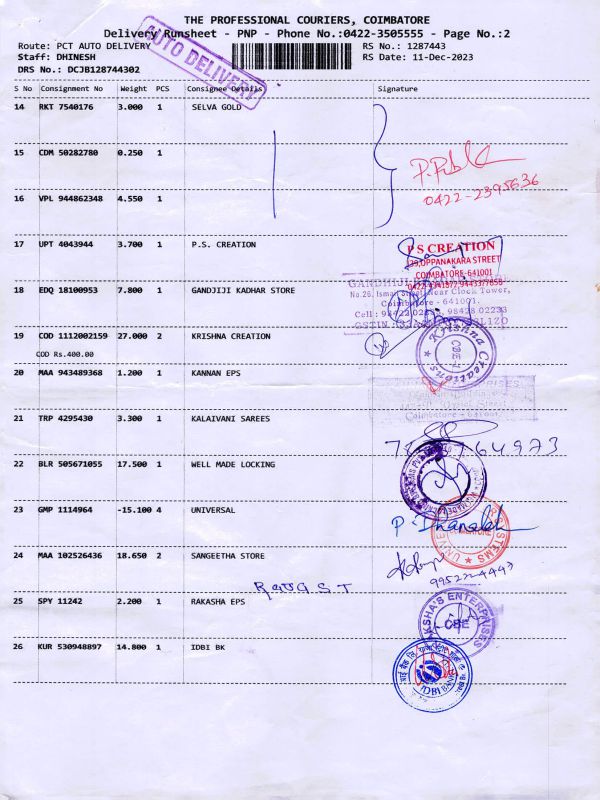 THE PROFESSIONAL COURIERS, COIMBATORE
Delivery Runsheet - PNP - Phone No.:0422-3505555 - Page No.:2
Route: PCT AUTO DELIVERY RS No.: 1287443
Staff: DHINESH RS Date: 11-Dec-2023
DRS No.: DCJB128744302
AUTO DELIVERY
S No Consignment No Weight PCS Consignee Details Signature
14 RKT 7540176 3.000 1 SELVA GOLD
15 CDM 50282780 0.250 1
0422-2395636
16 VPL 944862348 4.550 1
17 UPT 4043944 3.700 1 P.S. CREATION
P S CREATION
OPPANAKARA STREET
COIMBATORE-641001
18 EDQ 18100953 7.800 1 GANDJIJI KADHAR STORE
GANDHIJI
Near Clock Tower,
Coimbatore - 641001.
19 COD 1112002159 27.000 2 KRISHNA CREATION
COD Rs.400.00
Krishna Creations
CBE-1
20 MAA 943489368 1.200 1 KANNAN EPS
Coimbatore
21 TRP 4295430 3.300 1 KALAIVANI SAREES
22 BLR 505671055 17.500 1 WELL MADE LOCKING
23 GMP 1114964 -15.100 4 UNIVERSAL
24 MAA 102526436 18.650 2 SANGEETHA STORE
25 SPY 11242 2.200 1 RAKASHA EPS
ENTERPRISES
CBE
26 KUR 530948897 14.800 1 IDBI BK
IDBI BANK